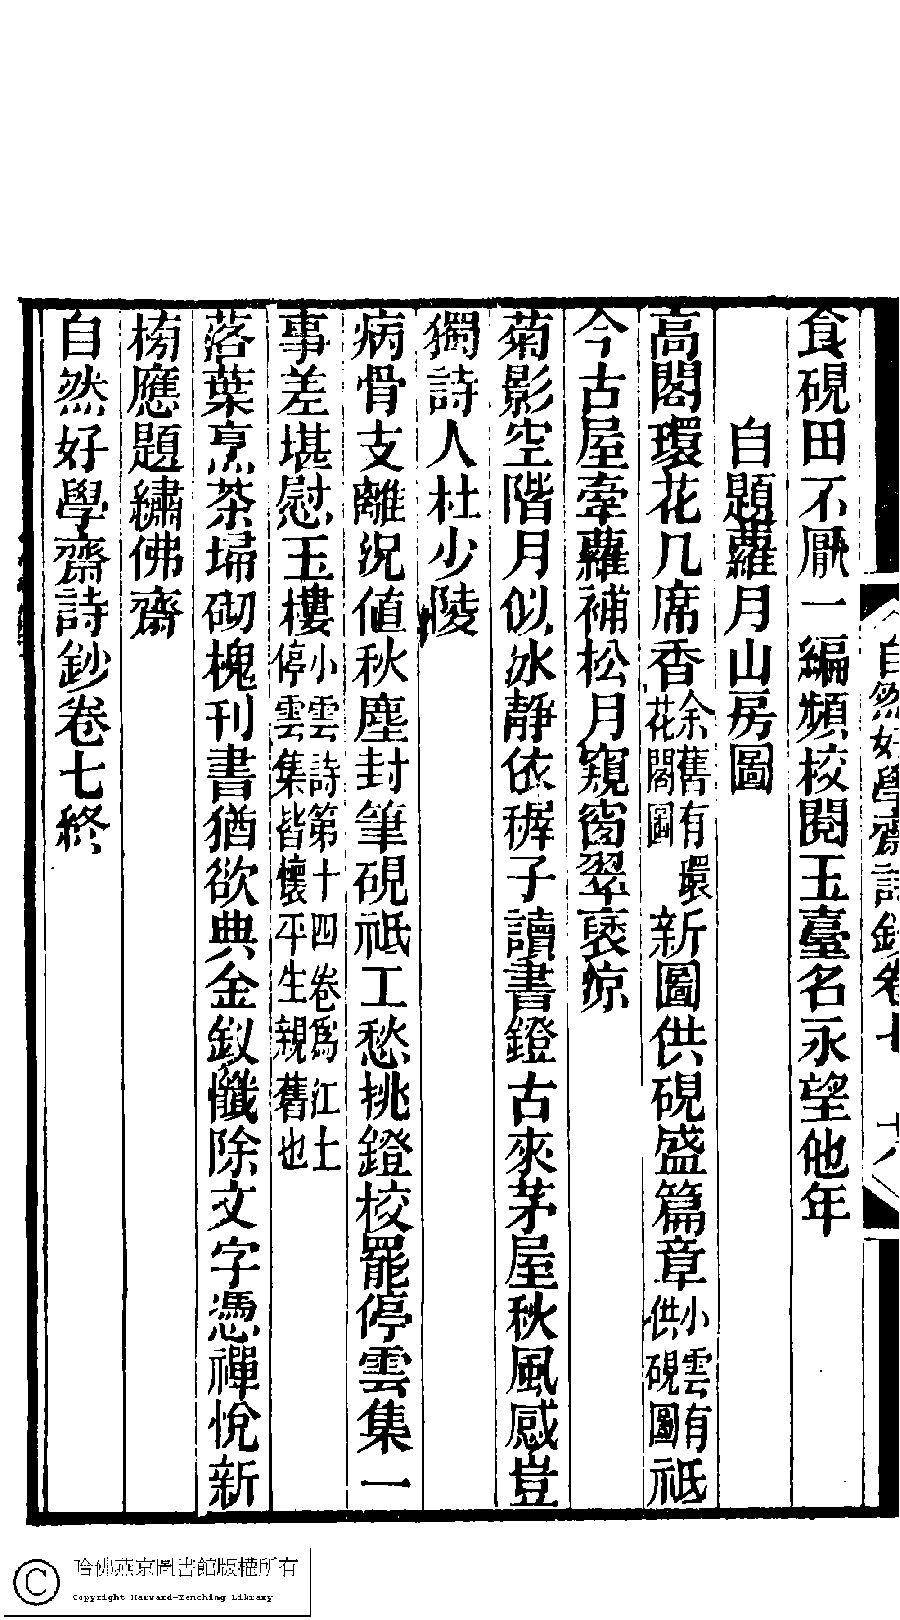 自然好學齋詩鈔卷七 十八
食硯田不厭一編頻校閱玉臺名永望他年
自題蘿月山房圖
高閣環花几席香余舊有環花閣圖新圖供硯盛篇章小雲有供硯圖祗
今古屋牽蘿補松月窺窗翠袠涼
菊影空階月似冰靜依稺子讀書鐙古來茅屋秋風感豈
獨詩人杜少陵
病骨支離況值秋塵封筆硯祗工愁挑鐙校罷停雲集一
事差堪慰玉樓小雲詩第十四卷爲江上停雲集皆懷平生親舊也
落葉烹茶埽砌槐刊書猶欲典金釵懺除文字憑禪悅新
榜應題繡佛齋
自然好學齋詩鈔卷七終
哈佛燕京圖書館版權所有
Copyright Harvard-Yenching Library